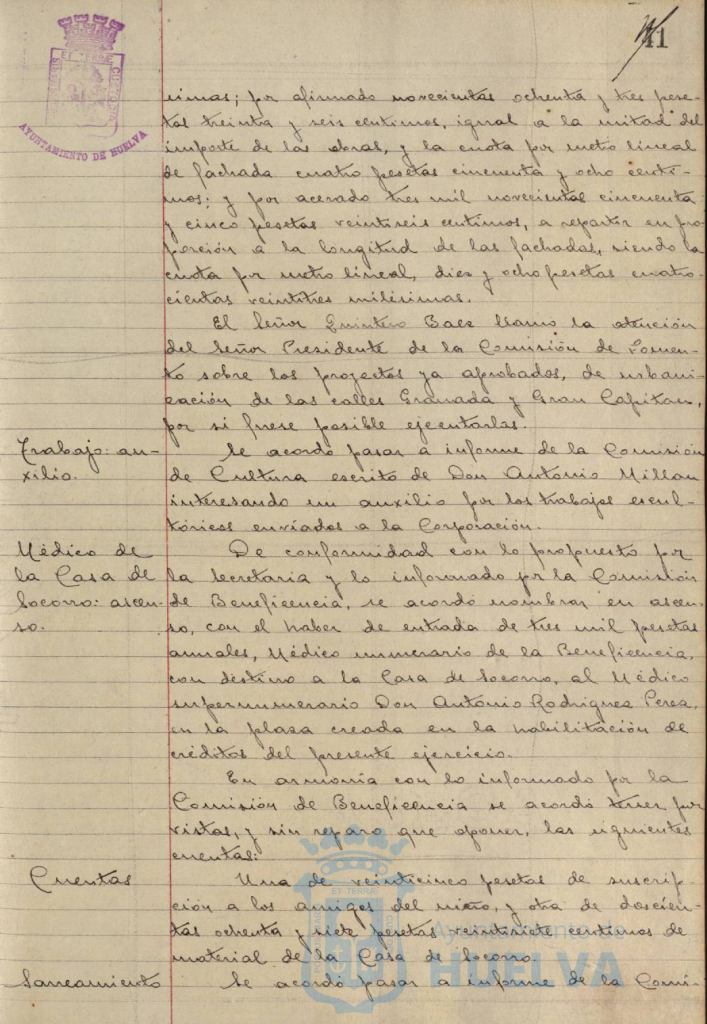 41
PORTUS MARIS ET TERRAE CUSTODIA
AYUNTAMIENTO DE HUELVA
simas; por afirmado novecientas ochenta y tres pese-
tas treinta y seis centimos, igual a la mitad del
importe de las obras, y la cuota por metro lineal
de fachada cuatro pesetas cincuenta y ocho centi-
mos; y por acerado tres mil novecientas cincuenta
y cinco pesetas veintiseis centimos, a repartir en pro-
porción a la longitud de las fachadas, siendo la
cuota por metro lineal, diez y ocho pesetas cuatro-
cientas veintitres milésimas.
El Señor Quintero Baez llamó la atención
del Señor Presidente de la Comisión de Fomen-
to sobre los proyectos ya aprobados, de urbani-
zación de las calles Granada y Gran Capitan,
por si fuese posible ejecutarlas.
Trabajo: au-
xilio.
Se acordó pasar a informe de la Comisión
de Cultura escrito de Don Antonio Millan
interesando un auxilio por los trabajos escul-
tóricos enviados a la Corporación.
Médico de
la Casa de
Socorro: ascen-
so.
De conformidad con lo propuesto por
la Secretaria y lo informado por la Comisión
de Beneficencia, se acordó nombrar en ascen-
so, con el haber de entrada de tres mil pesetas
anuales, Médico numerario de la Beneficencia,
con destino a la Casa de Socorro, al Médico
supernumerario Don Antonio Rodriguez Perez,
en la plaza creada en la habilitación de
créditos del presente ejercicio.
En armonía con lo informado por la
Comisión de Beneficencia se acordó tener por
vistas, y sin reparo que oponer, las siguientes
cuentas:
Cuentas
Una de veinticinco pesetas de suscrip-
ción a los amigos del niño, y otra de doscien-
tas ochenta y siete pesetas veintisiete centimos de
material de la Casa de Socorro.
Saneamiento
Se acordó pasar a informe de la Comi-
Ayuntamiento de
HUELVA